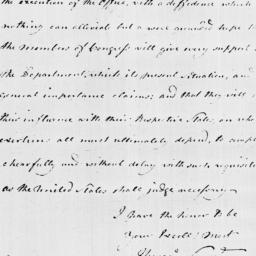 the execution of the Office, with a diffidence which
nothing can alleviate but a well grounded hope t
the members of Congress will give every support
the Department, which its present situation, and
general importance claims; and that they will
their influence with their Respective States, on who
exertions all must ultimately depend, to comply
chearfully and without delay with such requisitio
as the United States shall judge necessary.
I have the honor to be
Your Excell: most